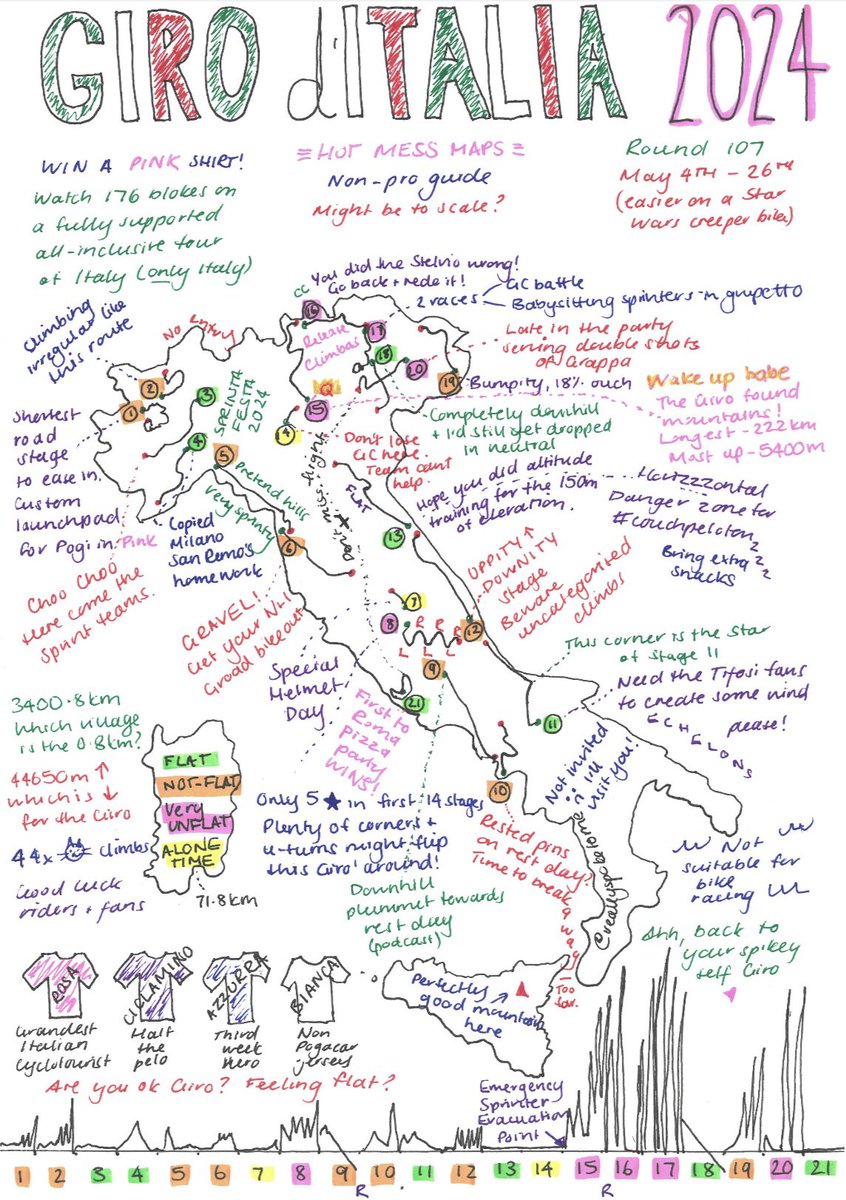 GIRO d'ITALIA 2024
WIN A PINK SHIRT!
Watch 176 blokes on
a fully supported
all-inclusive tour
of Italy (only Italy)
≡ HOT MESS MAPS ≡
Non-pro guide
Might be to scale?
Round 107
May 4TH - 26TH
(easier on a Star
Wars creeper bike)
You did the Stelvio wrong!
Go back + redo it!
CC
2 races
GC battle
Babysitting sprinters in grupetto
Climbing
irregular like
this route
No entry
Release
Climbas
Late in the party
serving double shots
of Grappa
Bumpity, 18% ouch
Wake up babe
The Giro found
mountains!
Longest - 222km
Most up - 5400m
Completely downhill
+ I'd still get dropped
in neutral
SPRINTA
FESTA
2024
Q
Shortest
road
stage
to ease in.
Custom
launchpad
for Pogi in Pink
Don't lose
GC here.
Team can't
help.
Pretend hills
Very sprinty
Don't miss flight
FLAT
Hope you did altitude
training for the 150m
of elevation.
Horizzzontal
Danger zone for
#couchpeloton
Bring extra
snacks
Copied
Milano
San Remo's
homework
Choo Choo
here come the
Sprint teams.
GRAVEL!
Get your N+1
Groad bike out
UPPITY ↑
DOWNITY
Stage
Beware
uncategorised
climbs
R R R R
L L L
This corner is the star
of stage 11
Special
Helmet
Day
First to
Roma
Pizza
party
WINS!
Need the Tifosi fans
to create some wind
please!
ECHELONS
3400.8km
Which village
is the 0.8km?
44650m ↑
which is ↓
for the Giro
44x climbs
Good luck
riders + fans
FLAT
NOT-FLAT
Very
UNFLAT
ALONE
TIME
71.8km
Only 5 ★ in first 14 stages
Plenty of corners +
u-turns might flip
this Giro around!
Not invited
I'll
visit you!
Rested pins
on rest day?
Time to break
away!
Too
Downhill
plummet towards
rest day
(podcast)
@reallyspecialome
Not
suitable for
bike
racing
Ahh, back to
your spikey
self Giro
ROSA
CICLAMINO
AZZURRA
BIANCA
Grandest
Italian
Cyclotourist
Half
the
pelo
Third
week
hero
Non
Pogacar
jersey
Perfectly
good mountain
here
Are you ok Giro? Feeling flat?
Emergency
Sprinter
Evacuation
Point
1 2 3 4 5 6 7 8 9 10 11 12 13 14 15 16 17 18 19 20 21
R R